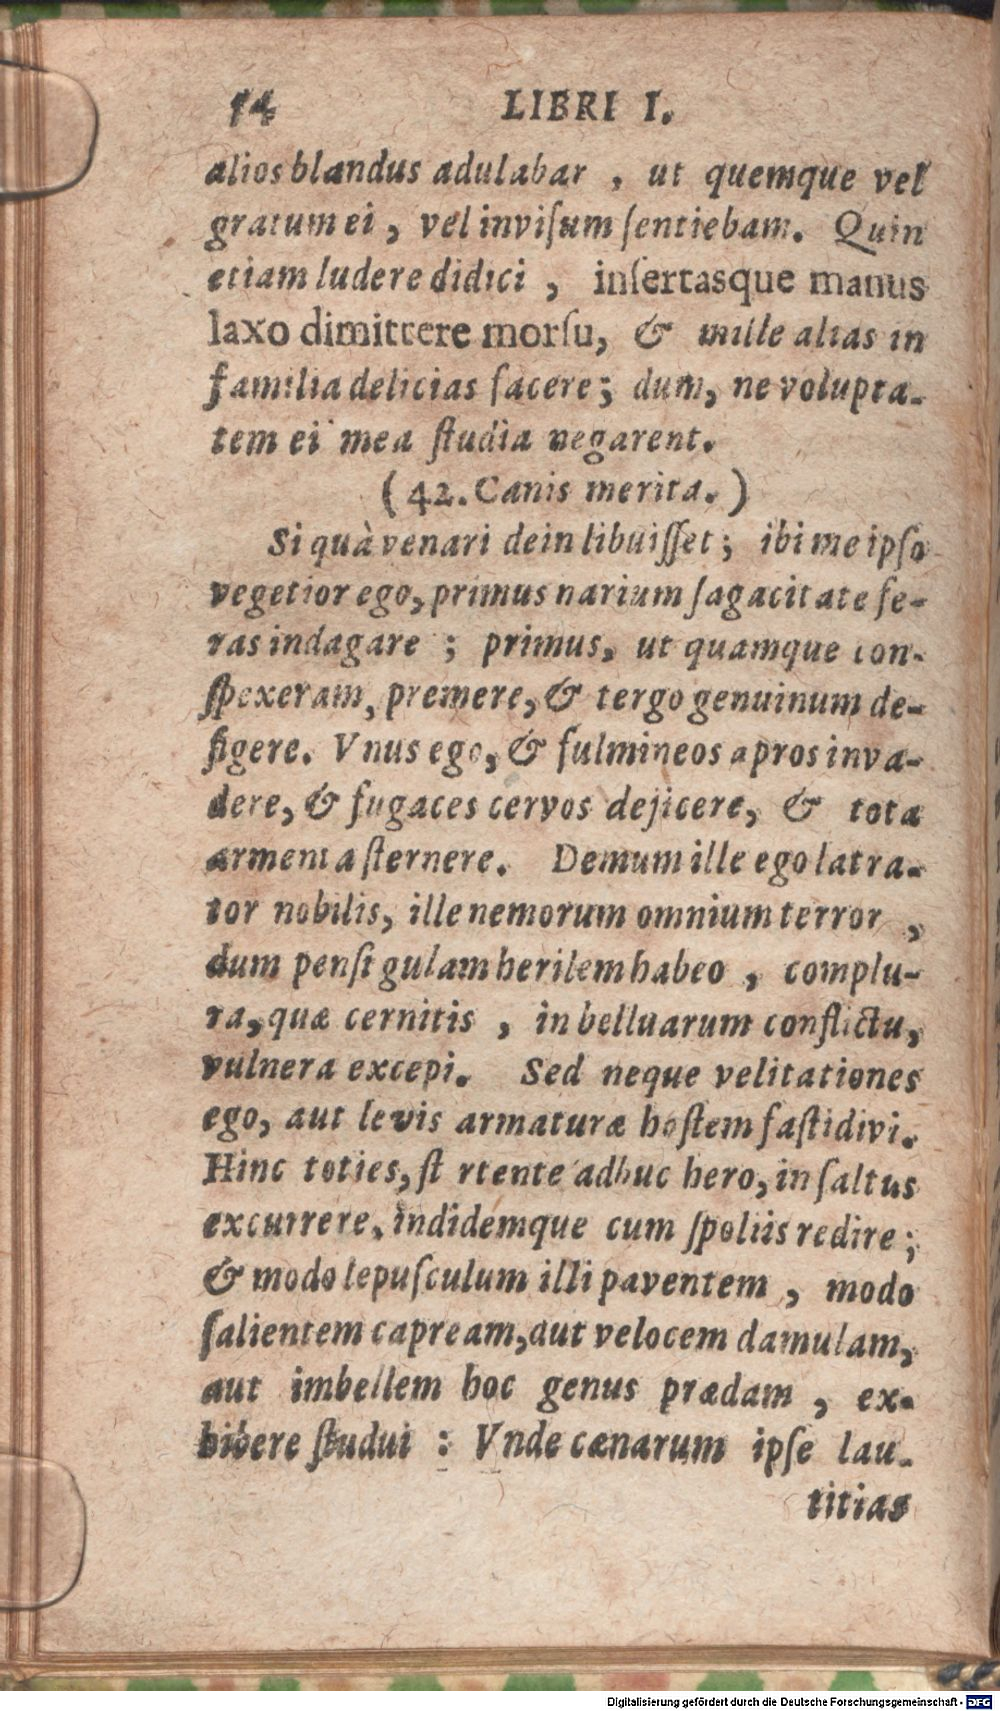 14 LIBRI I.
alios blandus adulabar , ut quemque vel
gratum ei , vel inviſum ſentiebam. Quin
etiam ludere didici , inſertasque manus
laxo dimittere morſu, & mille alias in
familia delicias facere ; dum, ne volupta-
tem ei mea ſtudia negarent.
( 42. Canis merita. )
Si quà venari dein libuiſſet ; ibi me ipſo
vegetior ego, primus narium ſagacitate fe-
ras indagare ; primus, ut quamque con-
ſpexeram, premere, & tergo genuinum de-
figere. Vnus ego, & fulmineos apros inva-
dere, & fugaces cervos dejicere, & tota
armenta ſternere. Demum ille ego latra-
tor nobilis, ille nemorum omnium terror ,
dum penſi gulam herilem habeo , complu-
ra, quæ cernitis , in belluarum conflictu,
vulnera excepi. Sed neque velitationes
ego, aut levis armaturæ hoſtem faſtidivi.
Hinc toties, ſt rtente adhuc hero, in ſaltus
excurrere, indidemque cum ſpoliis redire ;
& modo lepuſculum illi paventem , modo
ſalientem capream, aut velocem damulam,
aut imbellem hoc genus prædam , ex-
hibere ſtudui : Vnde cænarum ipſe lau-
titias
Digitalisierung gefördert durch die Deutsche Forschungsgemeinschaft - DFG